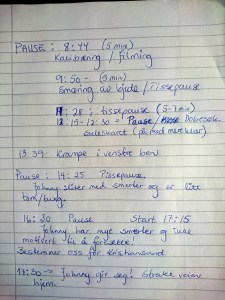 PAUSE: 8:44 (5 min)
Kalibrering / filming
9:50 - (3 min)
Smøring av kjede / Tissepause
11:28; tissepause (5-7 min)
12:15-12:30 = Pause / Dobesøk
(på med mer klær)
13:39 Krampe i venstre ben
Pause: 14:25 Tissepause
Johnny sliter med smerter og er litt
tom/
16:30 Pause Start 17:15
Johnny har mye smerter og lite
motivert til å fortsette!
Bestemmer oss for Kristiansand
17:30 → Johnny gir seg! Strake veien
hjem.